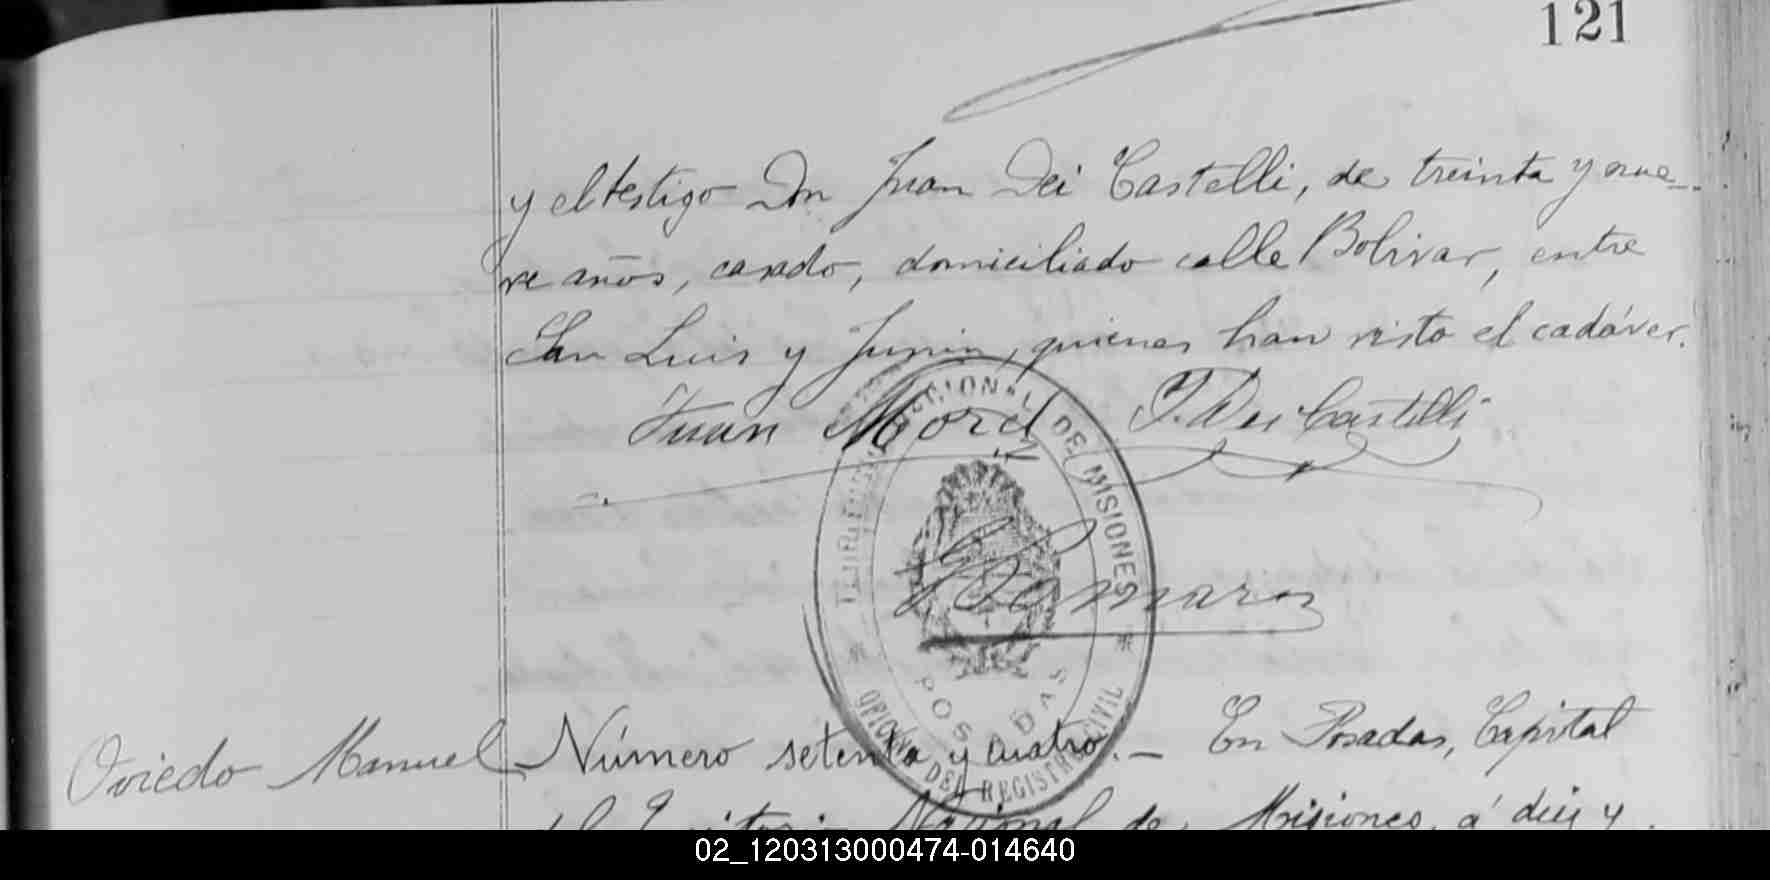 121
y el testigo Don Juan Dei Castelli, de treinta y nue-
ve años, casado, domiciliado calle Bolivar, entre
San Luis y Junin, quienes han visto el cadáver.
Juan Mord J. Dei Castelli
TERRITORIO NACIONAL DE MISIONES
POSADAS
OFICINA DEL REGISTRO CIVIL
Oviedo Manuel Número setenta y cuatro.— En Posadas, Capital
del Territorio Nacional de Misiones, á diez y
02_120313000474-014640